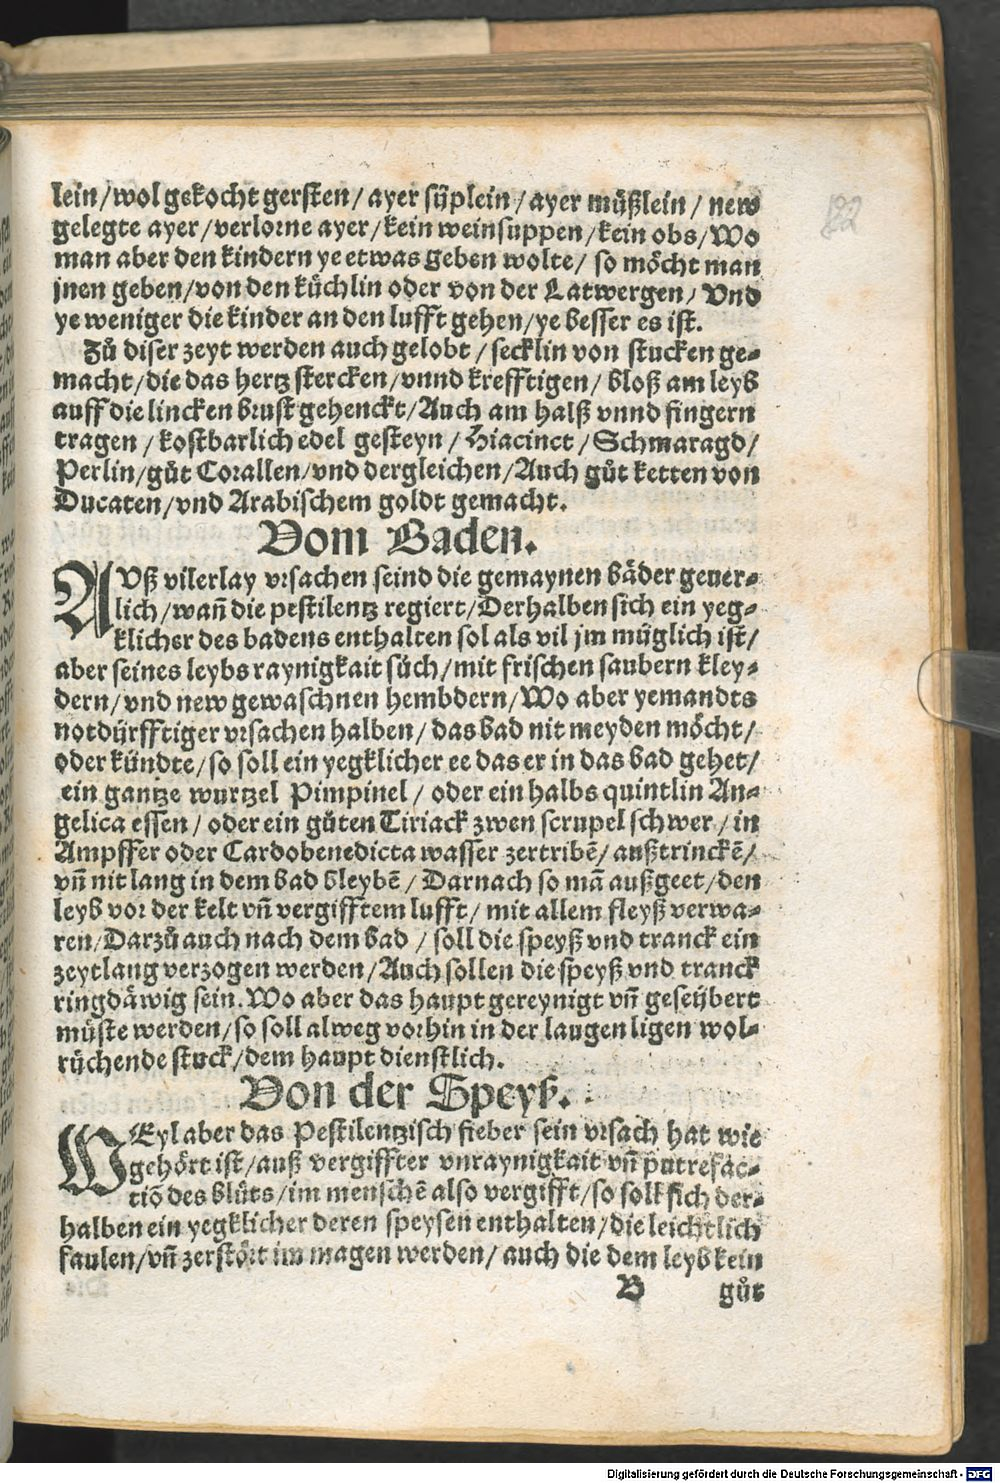 lein/wol gekocht gersten/ ayer süplein/ayer müßlein/ new
gelegte ayer/verlorne ayer/kein weinsuppen/kein obs/Wo
man aber den kindern ye etwas geben wolte/ so möcht man
jnen geben/von den küchlin oder von der Latwergen/ Vnd
ye weniger die kinder an den lufft gehen/ye besser es ist.
Zů diser zeyt werden auch gelobt/secklin von stucken ge-
macht/die das hertz stercken/vnnd krefftigen/ bloß am leyb
auff die lincken brust gehenckt/Auch am halß vnnd fingern
tragen/kostbarlich edel gesteyn/Hiacinct/Schmaragd/
Perlin/gůt Corallen/vnd dergleichen/Auch gůt ketten von
Ducaten/vnd Arabischem goldt gemacht.
Vom Baden.
AVß vilerlay vrsachen seind die gemaynen bäder gener-
lich/wañ die pestilentz regiert/Derhalben sich ein yeg-
klicher des badens enthalten sol als vil jm müglich ist/
aber seines leybs raynigkait sůch/mit frischen saubern kley-
dern/vnd new gewaschnen hembdern/Wo aber yemandts
notdürfftiger vrsachen halben/das bad nit meyden möcht/
oder kündte/so soll ein yegklicher ee das er in das bad gehet/
ein gantze wurtzel Pimpinel/ oder ein halbs quintlin An-
gelica essen/ oder ein gůten Tiriack zwen scrupel schwer/in
Ampffer oder Cardobenedicta wasser zertribẽ/außtrinckẽ/
vñ nit lang in dem bad bleybẽ/Darnach so mã außgeet/den
leyb vor der kelt vñ vergifftem lufft/mit allem fleyß verwa-
ren/Darzů auch nach dem bad/soll die speyß vnd tranck ein
zeytlang verzogen werden/Auch sollen die speyß vnd tranck
ringdäwig sein. Wo aber das haupt gereynigt vñ geseübert
můste werden/so soll alweg vorhin in der laugen ligen wol-
rüchende stuck/dem haupt dienstlich.
Von der Speyß.
WEyl aber das Pestilentzisch fieber sein vrsach hat wie
gehört ist/auß vergiffter vnraynigkait vñ putrefac-
tiõ des blůts/im menschẽ also vergifft/so soll sich der-
halben ein yegklicher deren speysen enthalten/die leichtlich
faulen/vñ zerstört im magen werden/auch die dem leyb kein
B gůt
Digitalisierung gefördert durch die Deutsche Forschungsgemeinschaft - DFG